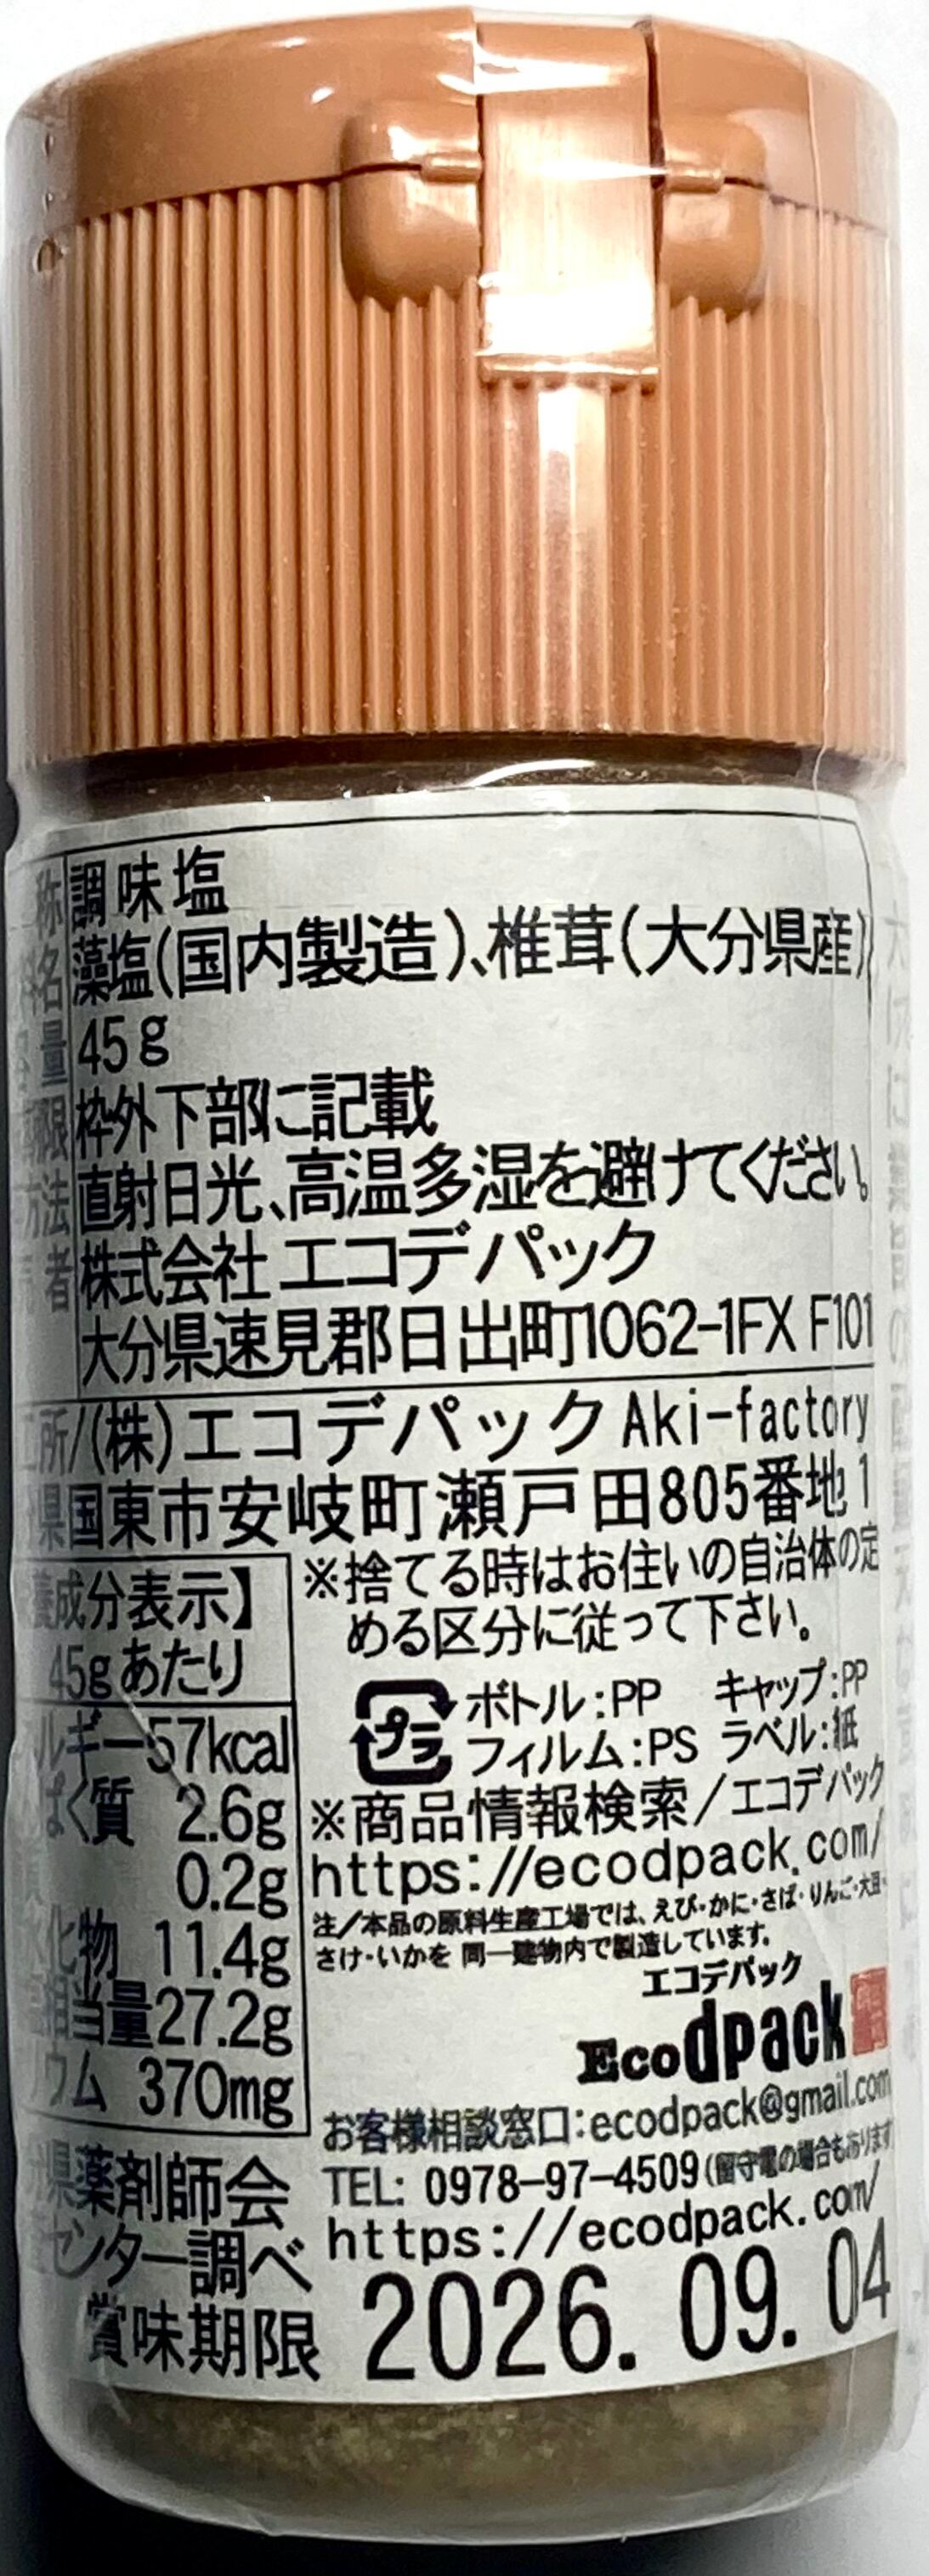 称 調味塩
名 藻塩(国内製造)、椎茸(大分県産)
量 45g
限 枠外下部に記載
方法 直射日光、高温多湿を避けてください。
者 株式会社 エコデパック
大分県速見郡日出町1062-1FX F101
所/(株)エコデパック Aki-factory
県国東市安岐町瀬戸田805番地1
養成分表示】
45gあたり
ルギー57kcal
ぱく質 2.6g
0.2g
化物 11.4g
相当量27.2g
ウム 370mg
県薬剤師会
センター調べ
※捨てる時はお住いの自治体の定
める区分に従って下さい。
プラ ボトル:PP キャップ:PP
フィルム:PS ラベル:紙
※商品情報検索/エコデパック
https://ecodpack.com/
注/本品の原料生産工場では、えび・かに・さば・りんご・大豆・
さけ・いかを 同一建物内で製造しています。
エコデパック
Ecodpack
お客様相談窓口:ecodpack@gmail.com
TEL: 0978-97-4509(留守電の場合もあります
https://ecodpack.com/
賞味期限 2026. 09. 04